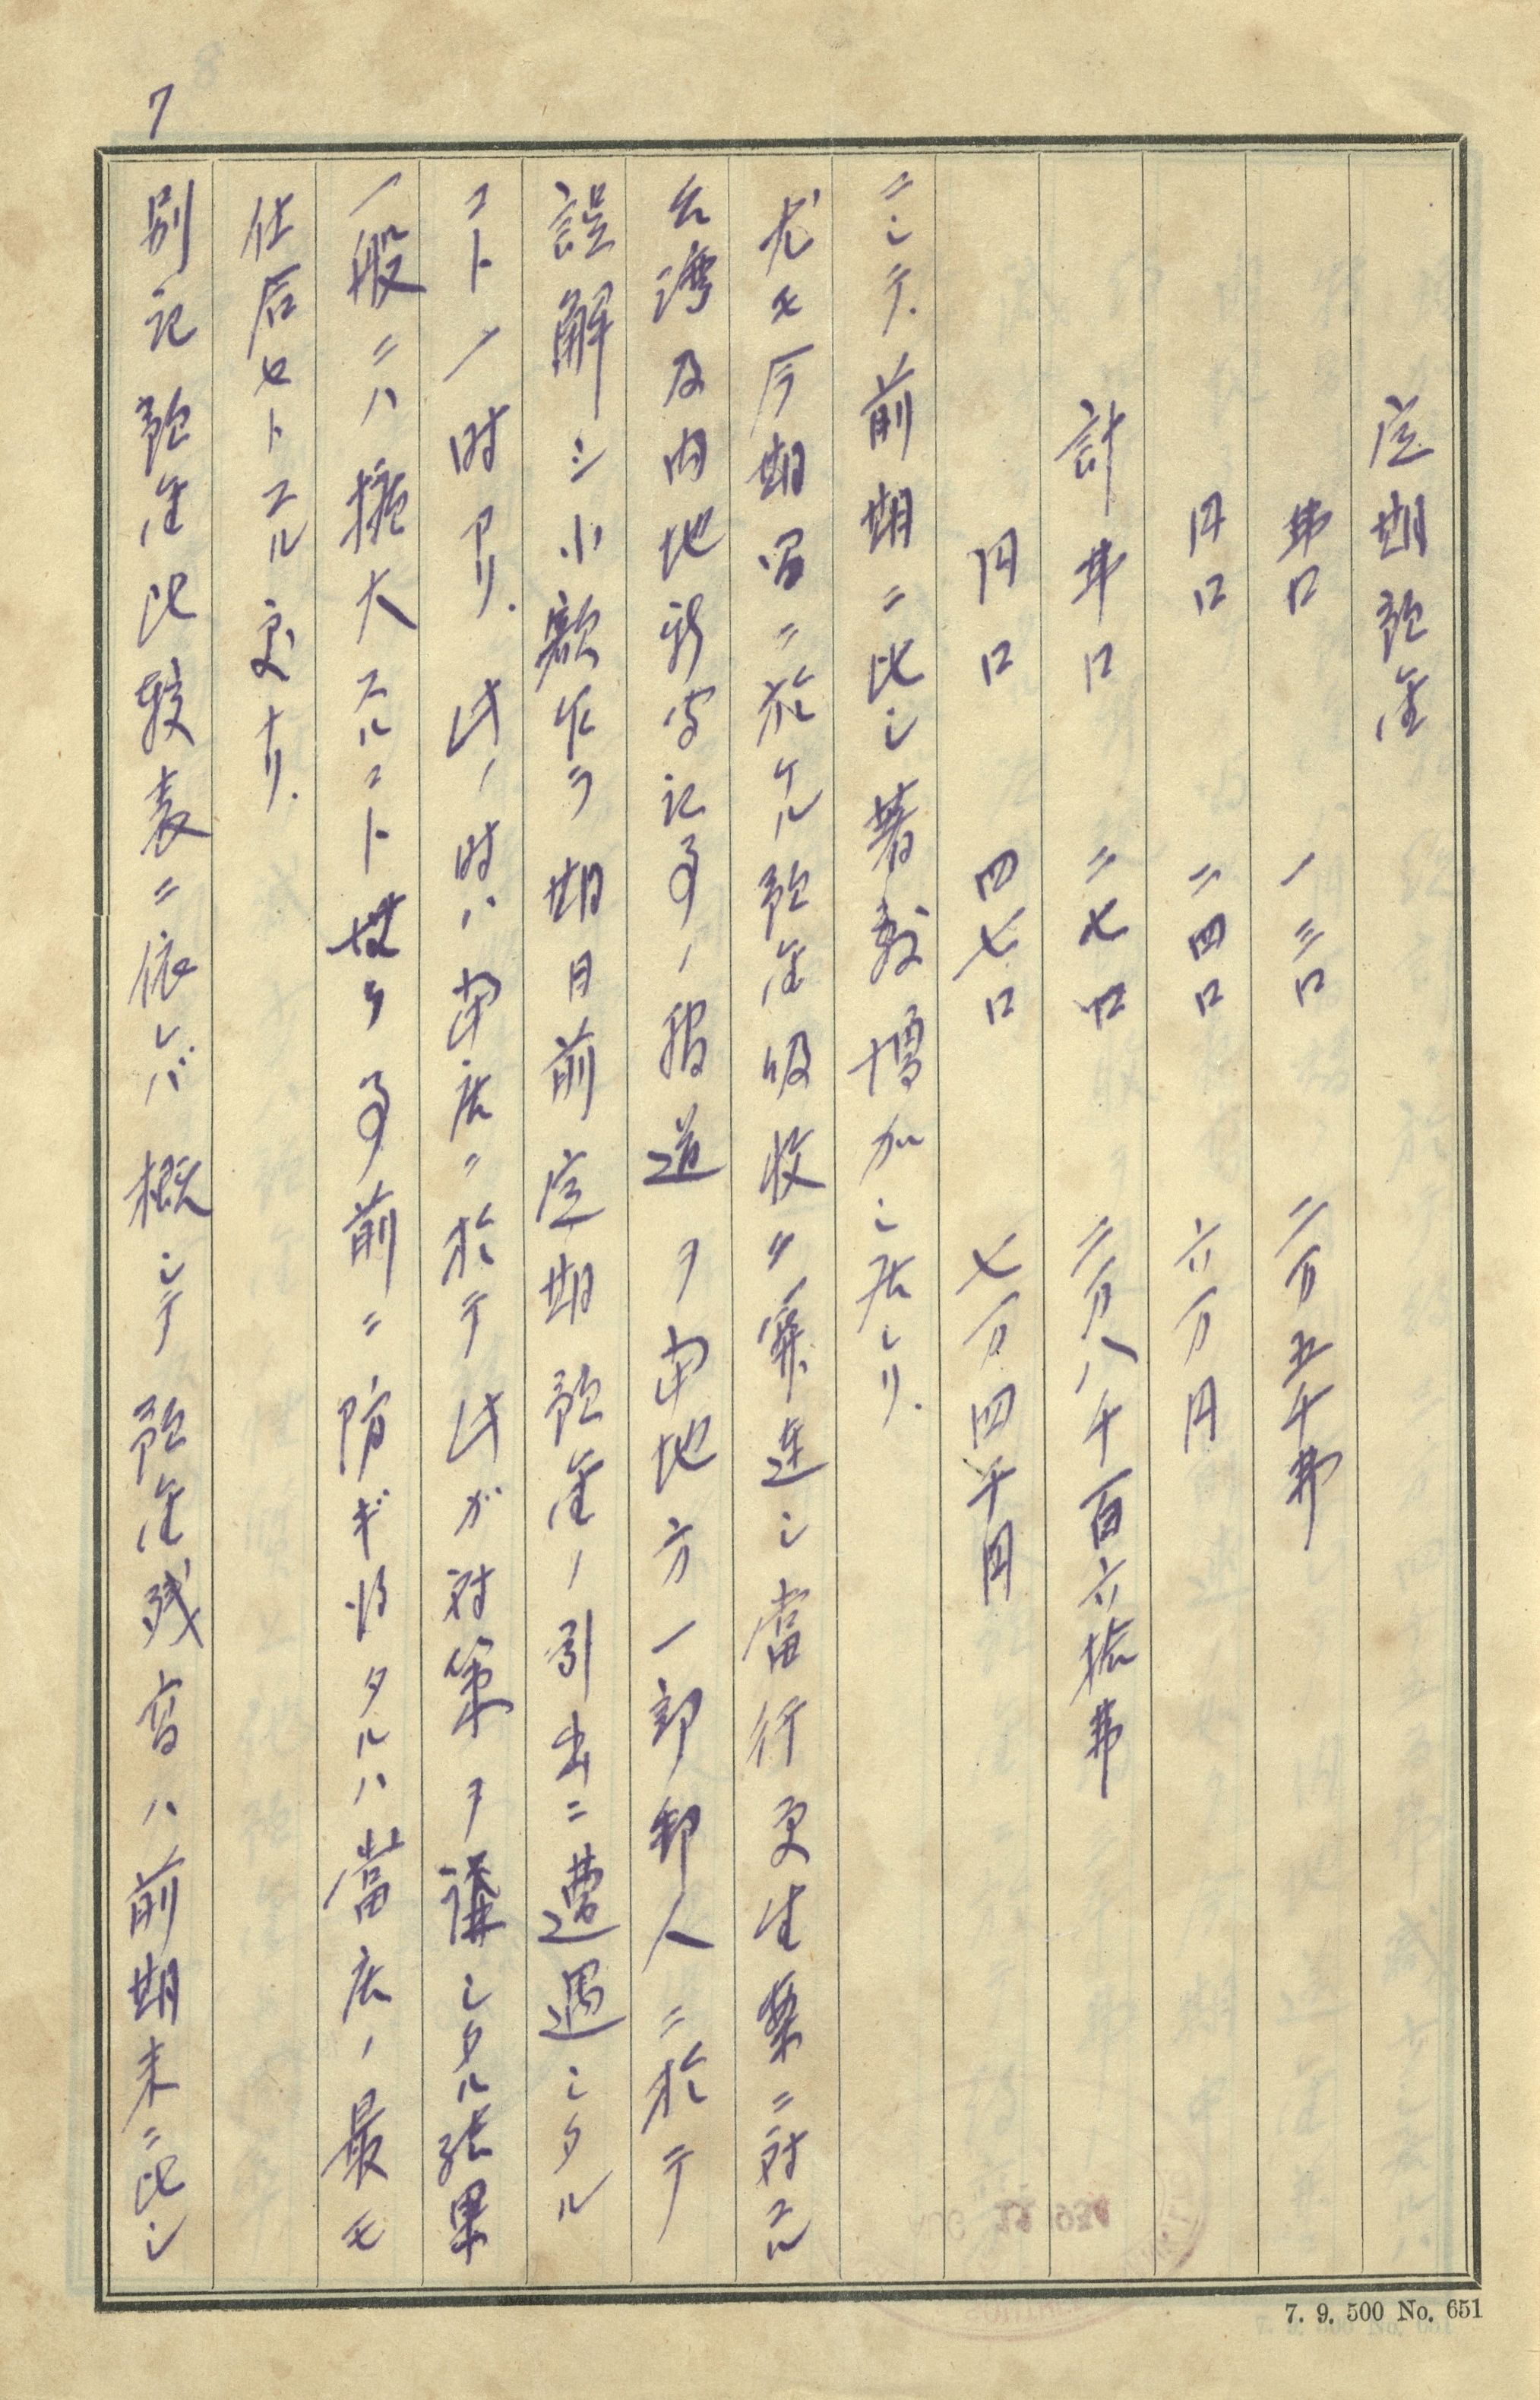 7
定期預金
弗口 一三口 二万五千弗
円口 二四口 六万円
計 弗口 二七口 二万八千百六拾弗
円口 四七口 七万四千円
ニシテ前期ニ比シ著敷増加シ居レリ.
尤モ今期間ニ於ケル預金吸收ニ邁進シ當行更生案ニ対スル
台湾及内地新聞記事ノ報道ヲ当地方一部邦人ニ於テ
誤解シ小額乍ラ期日前定期預金ノ引出ニ遭遇シタル
コト一時アリ. 此ノ時ハ当店ニ於テ此ガ対策ヲ講シタル結果
一般ニハ擴大スルコト無ク事前ニ防ギ得タルハ當店ノ最モ
仕合セトスル処ナリ.
別記預金比較表ニ依レバ概シテ預金残高ハ前期末ニ比シ
7. 9. 500 No. 651